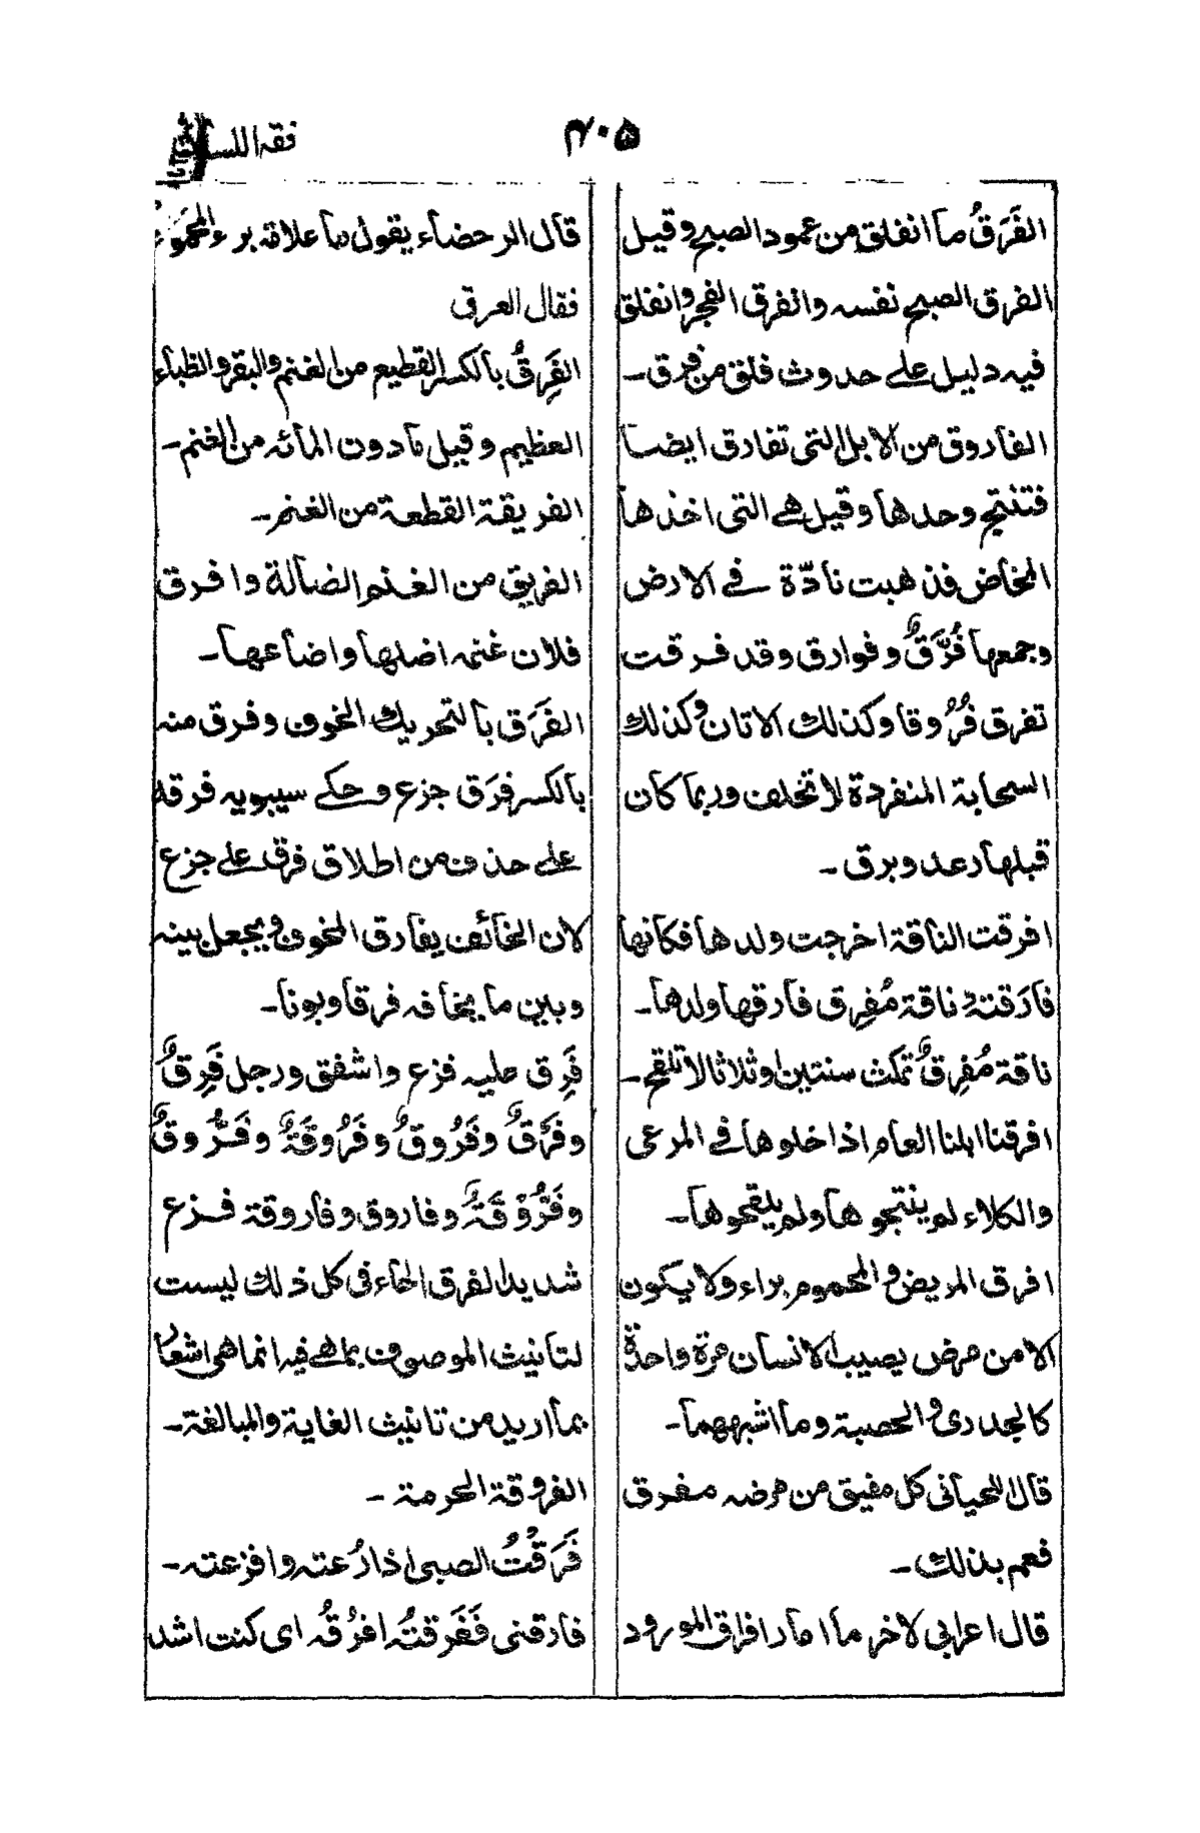 ۴۰۵
فقه اللسان
الفَرَقُ ما انفلق من عمود الصبح وقيل
الفرق الصبح نفسه وانفرق الفجر وانفلق
فيه دليل على حدوث فلق من فرق۔
الفاروق من الابل التى تفارق ايضا
فتنتج وحدها وقيل هى التى اخذها
المخاض فذهبت نادّة فى الارض
وجمعها فُرَّقٌ وفوارق وقد فرقت
تفرق فُرُوقا وكذلك الاتان وكذلك
السحابة المنفردة لا تخلف وربما كان
قبلها رعد وبرق۔
افرقت الناقة اخرجت ولدها فكانها
فارَقته وناقة مُفرِق فارقها ولدها۔
ناقة مُفرِقٌ تمكث سنتين اوثلاثا لا تلقح۔
افرقنا ابلنا العام اذا خلوها فى المرعى
والكلاء لم ينتجوها ولم يلقحوها۔
افرق المريض والمحموم براء ولا يكون
الا من مرض يصيب الانسان مرة واحدة
كالجدرى والحصبة وما اشبههما۔
قال اللحيانى كل مفيق من مرضه مفرق
فعم بذلك۔
قال اعرابى لاخر ما امار افراق المورود
قال الرحضاء يقول ما علاقه برء المحموم
فقال العرق
الفَرِقُ بالكسر القطيع من الغنم والبقر والظباء
العظيم وقيل مادون المائه من الغنم۔
الفريقة القطعة من الغنم۔
الفريق من الغنم الضالة وافرق
فلان غنمه اضلها واضاعها۔
الفَرَق بالتحريك الخوف وفرق منه
بالكسر فرَق جزع وحكى سيبويه فرقه
على حذف من اطلاق فرق على جزع
لان الخائف يفارق المخوف ويجعل بينه
وبين ما يخافه فرقا وبونا۔
فَرِق عليه فزع واشفق ورجل فَرِقٌ
وفَرُقٌ وفَرُوقٌ وفَرُوقَةٌ وفَرُّوقٌ
وفَرُّوْقَةٌ وفاروق وفاروقة فزع
شديد الفرق الهاء فى كل ذلك ليست
لتانيث الموصوف بماهى فيه انما هى اشعار
بما اريد من تانيث الغاية والمبالغة۔
الفروقة الحرمة۔
فَرَّقْتُ الصبى اذا رُعته وافزعته۔
فارقنى فَفَرَقتُه افرُقُه اى كنت اشد